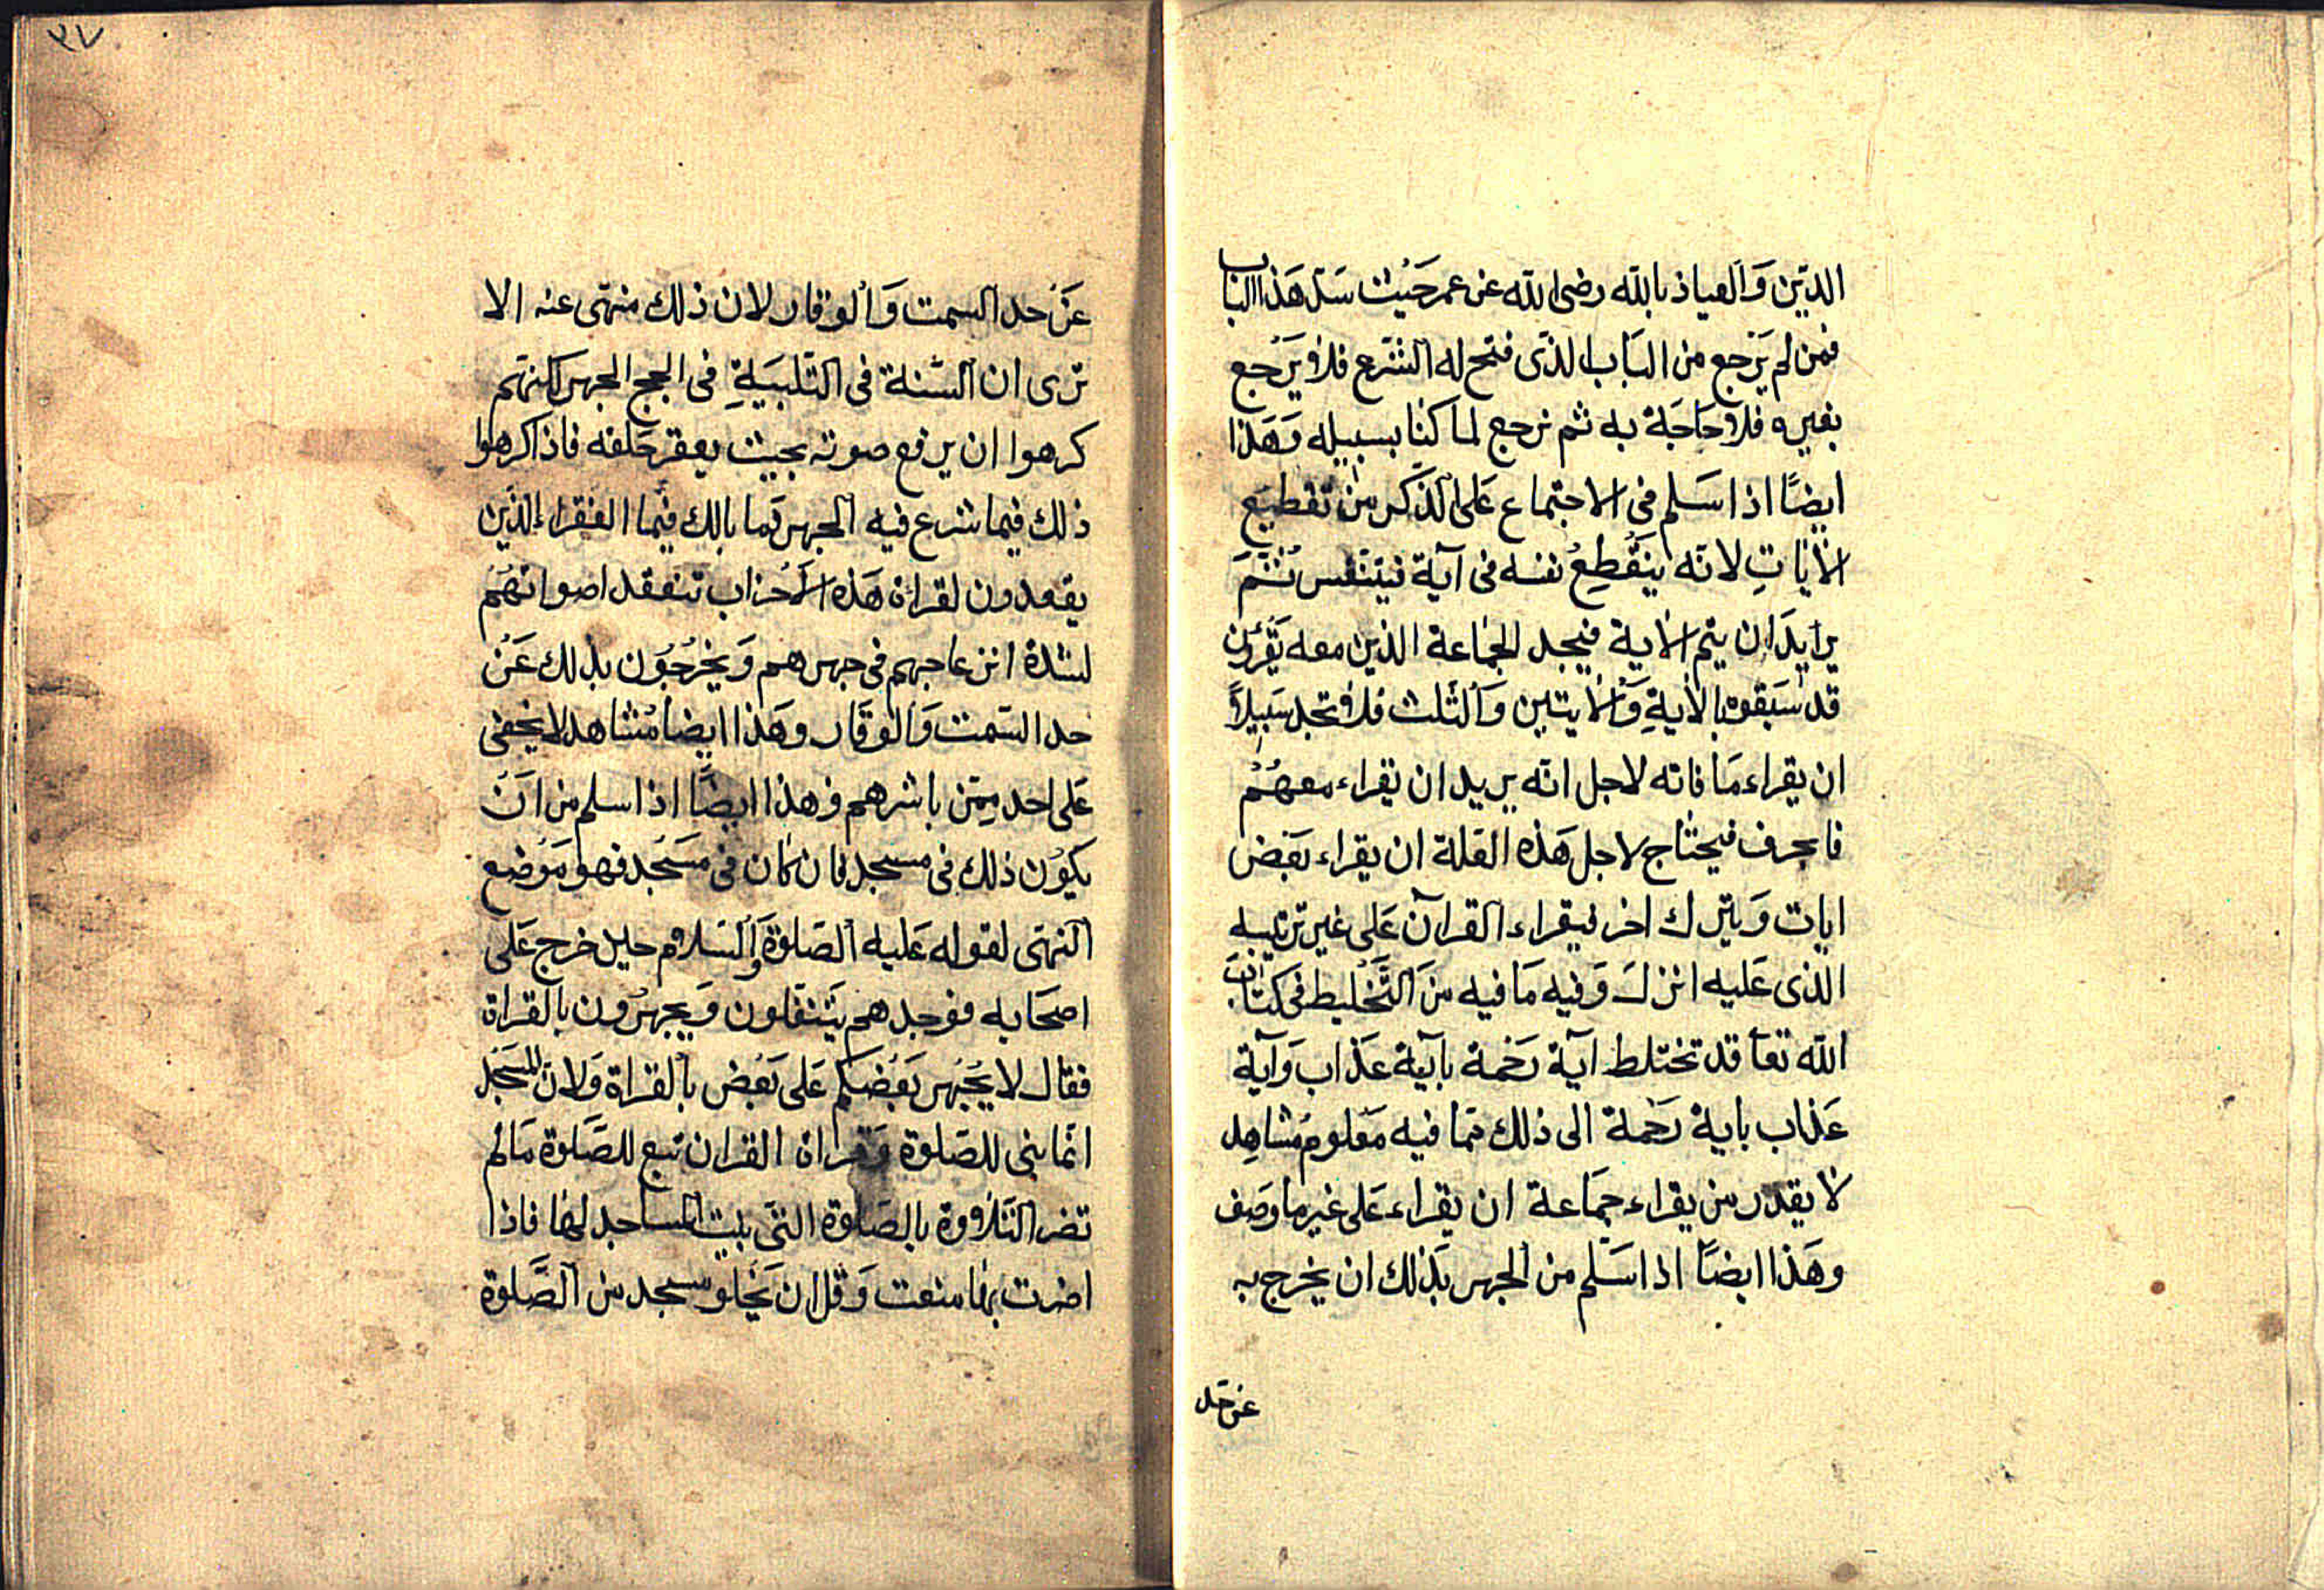 الدّين وَالعياذ بالله رضى الله عن عمر حَيْث سَدّ هَذا الباب
فمن لم يَرْجع من البَاب الذى فتح له الشّرع فلا يَرْجع
بغيره فلا حَاجَة به ثم نرجع لما كنا بسبيله وَهَذا
ايضًا اذا سَلم فى الاجتماع عَلى الذكر من تقطيع
الايَاتِ لانّه ينقَطِعُ نفسه فى آية فيتنفس ثمّ
يرايدان يتم الاية فيجد الجماعة الذين معه يقرَؤن
قد سَبَقوه بالايةِ وَالايتين وَالثّلث فلا تجد سَبيلاً
ان يقراء مَا فاته لاجل انّه يريد ان يقراء معهُمْ
فاحرف فيحتاج لاجل هَذه العلة ان يقراء بَعْض
ايات وَيترك اخر فيقراء القرآن عَلى غير ترتيبه
الذى عَليه انزل وَفيه مَا فيه منَ التَّخْليط فى كتاب
الله تعا قد تختلط آية رَحْمة بآية عذاب وَآية
عَذاب باية رَحْمة الى ذلك ممّا فيه مَعْلوم مُشاهِد
لا يقدر من يقراء جمَاعة ان يقراء عَلى غير ما وصَف
وهَذا ايضًا اذا سَلم من الجهر بذلك ان يخرج به
عن حد
٣٧
عَنْ حد السمت وَالوقار لان ذلك منهى عنه الا
ترى ان السّنة فى التّلبيَةِ فى الحج الجهر لكنهم
كرهوا ان يرفع صوته بحيث يعقر حَلقه فاذا كرهوا
ذلك فيما شرع فيه الجهر فما بالك فيما الفقراء الذين
يقعدون لقراة هَذه الاحْزاب تنعقد اصواتهُمْ
لشدة انزعاجهم فى جهرهم وَيخرُجُون بذلك عَنْ
حد السّمت وَالوقَار وهَذا ايضا مُشاهد لا يخفى
عَلى احد ممّن باشرهم وهذا ايضًا اذا سلم من اَنْ
يكوُن ذلك فى مسجد فان كان فى مَسْجد فهو مَوْضع
النهى لقوله عَليه الصَلوة وَالسَلام حين خرج عَلى
اصحَابه فوجدهم يَتنفلون وَيجهرُون بالقراة
فقال لا يَجْهر بَعْضكم عَلى بَعْض بالقراة وَلان المسَجْد
انما بنى للصَلوة وَقراة القران تبع للصَّلوة مَا لم
تضر التّلاووة بالصَلوة التى بنيت المساجد لها فاذا
اضرت بها منعت وَقل ان يَخْلو مسجد من الصَّلوة